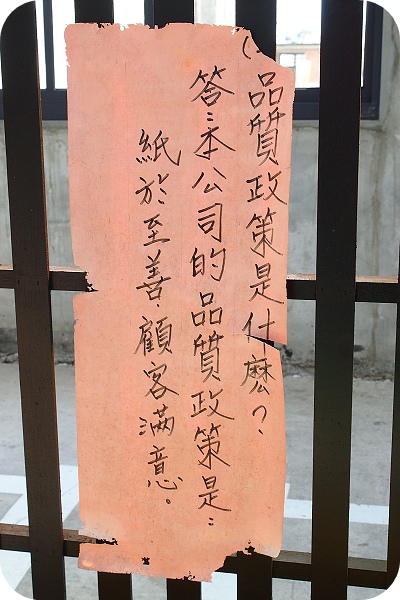 品質政策是什麼？
答：本公司的品質政策是：
紙於至善．顧客滿意。